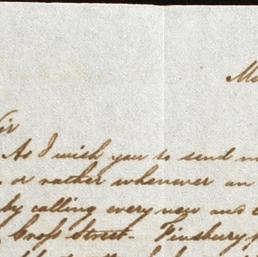 Mo
Sir
As I wish you to send m
or rather whenever an
by calling every now and
Cross Street - Finsbury